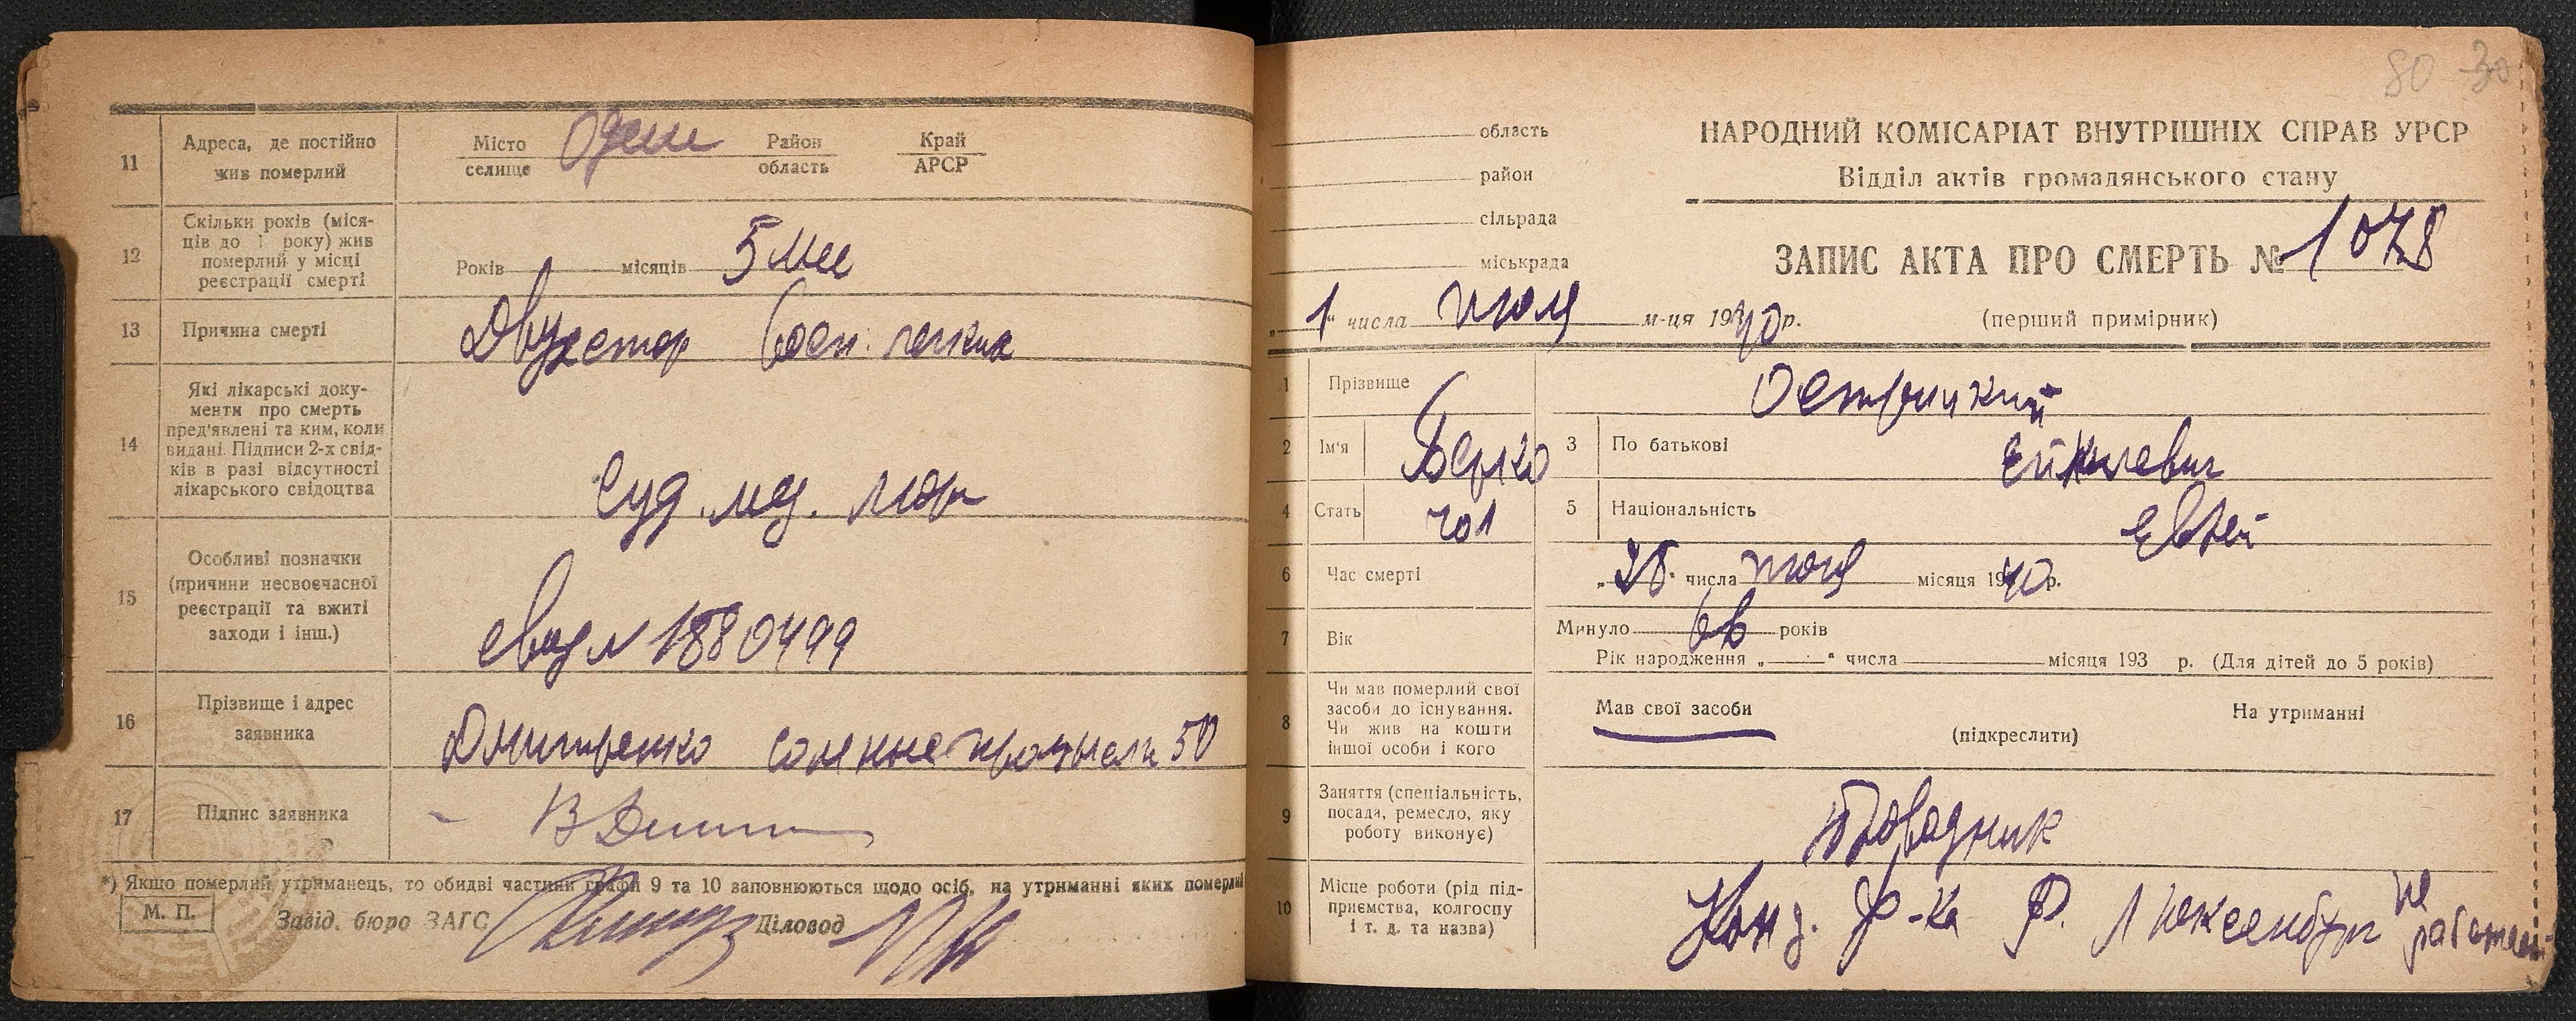 11
Адреса, де постійно
жив померлий
Місто
селище
Район
область
Край
АРСР
12
Скільки років (міся-
ців до 1 року) жив
померлий у місці
реєстрації смерті
Років
місяців
5 мес
13
Причина смерті
Двухстор восп. легких
14
Які лікарські доку-
менти про смерть
пред'явлені та ким, коли
видані. Підписи 2-х свід-
ків в разі відсутності
лікарського свідоцтва
Суд. мед.
15
Особливі позначки
(причини несвоєчасної
реєстрації та вжиті
заходи і інш.)
№ 1880499
16
Прізвище і адрес
заявника
Дмитренко 50
17
Підпис заявника
*) Якщо померлий утриманець, то обидві частини графи 9 та 10 заповнюються щодо осіб, на утриманні яких померлий
М. П.
Завід. бюро ЗАГС
Діловод
80 30
область
район
сільрада
міськрада
НАРОДНИЙ КОМІСАРІАТ ВНУТРІШНІХ СПРАВ УРСР
Відділ актів громадянського стану
ЗАПИС АКТА ПРО СМЕРТЬ № 1078
„1“ числа июля м-ця 1940 р.
(перший примірник)
1
Прізвище
Острицкий
2
Ім'я
Берко
3
По батькові
4
Стать
чол
5
Національність
Еврей
6
Час смерті
числа
місяця 1940 р.
7
Вік
Минуло
років
Рік народження „ “ числа місяця 193 р. (Для дітей до 5 років)
8
Чи мав померлий свої
засоби до існування.
Чи жив на кошти
іншої особи і кого
Мав свої засоби
(підкреслити)
На утриманні
9
Заняття (спеціальність,
посада, ремесло, яку
роботу виконує)
Проводник
10
Місце роботи (рід під-
приємства, колгоспу
і т. д. та назва)
Конд. ф-ка Р. Люксембург не
работает